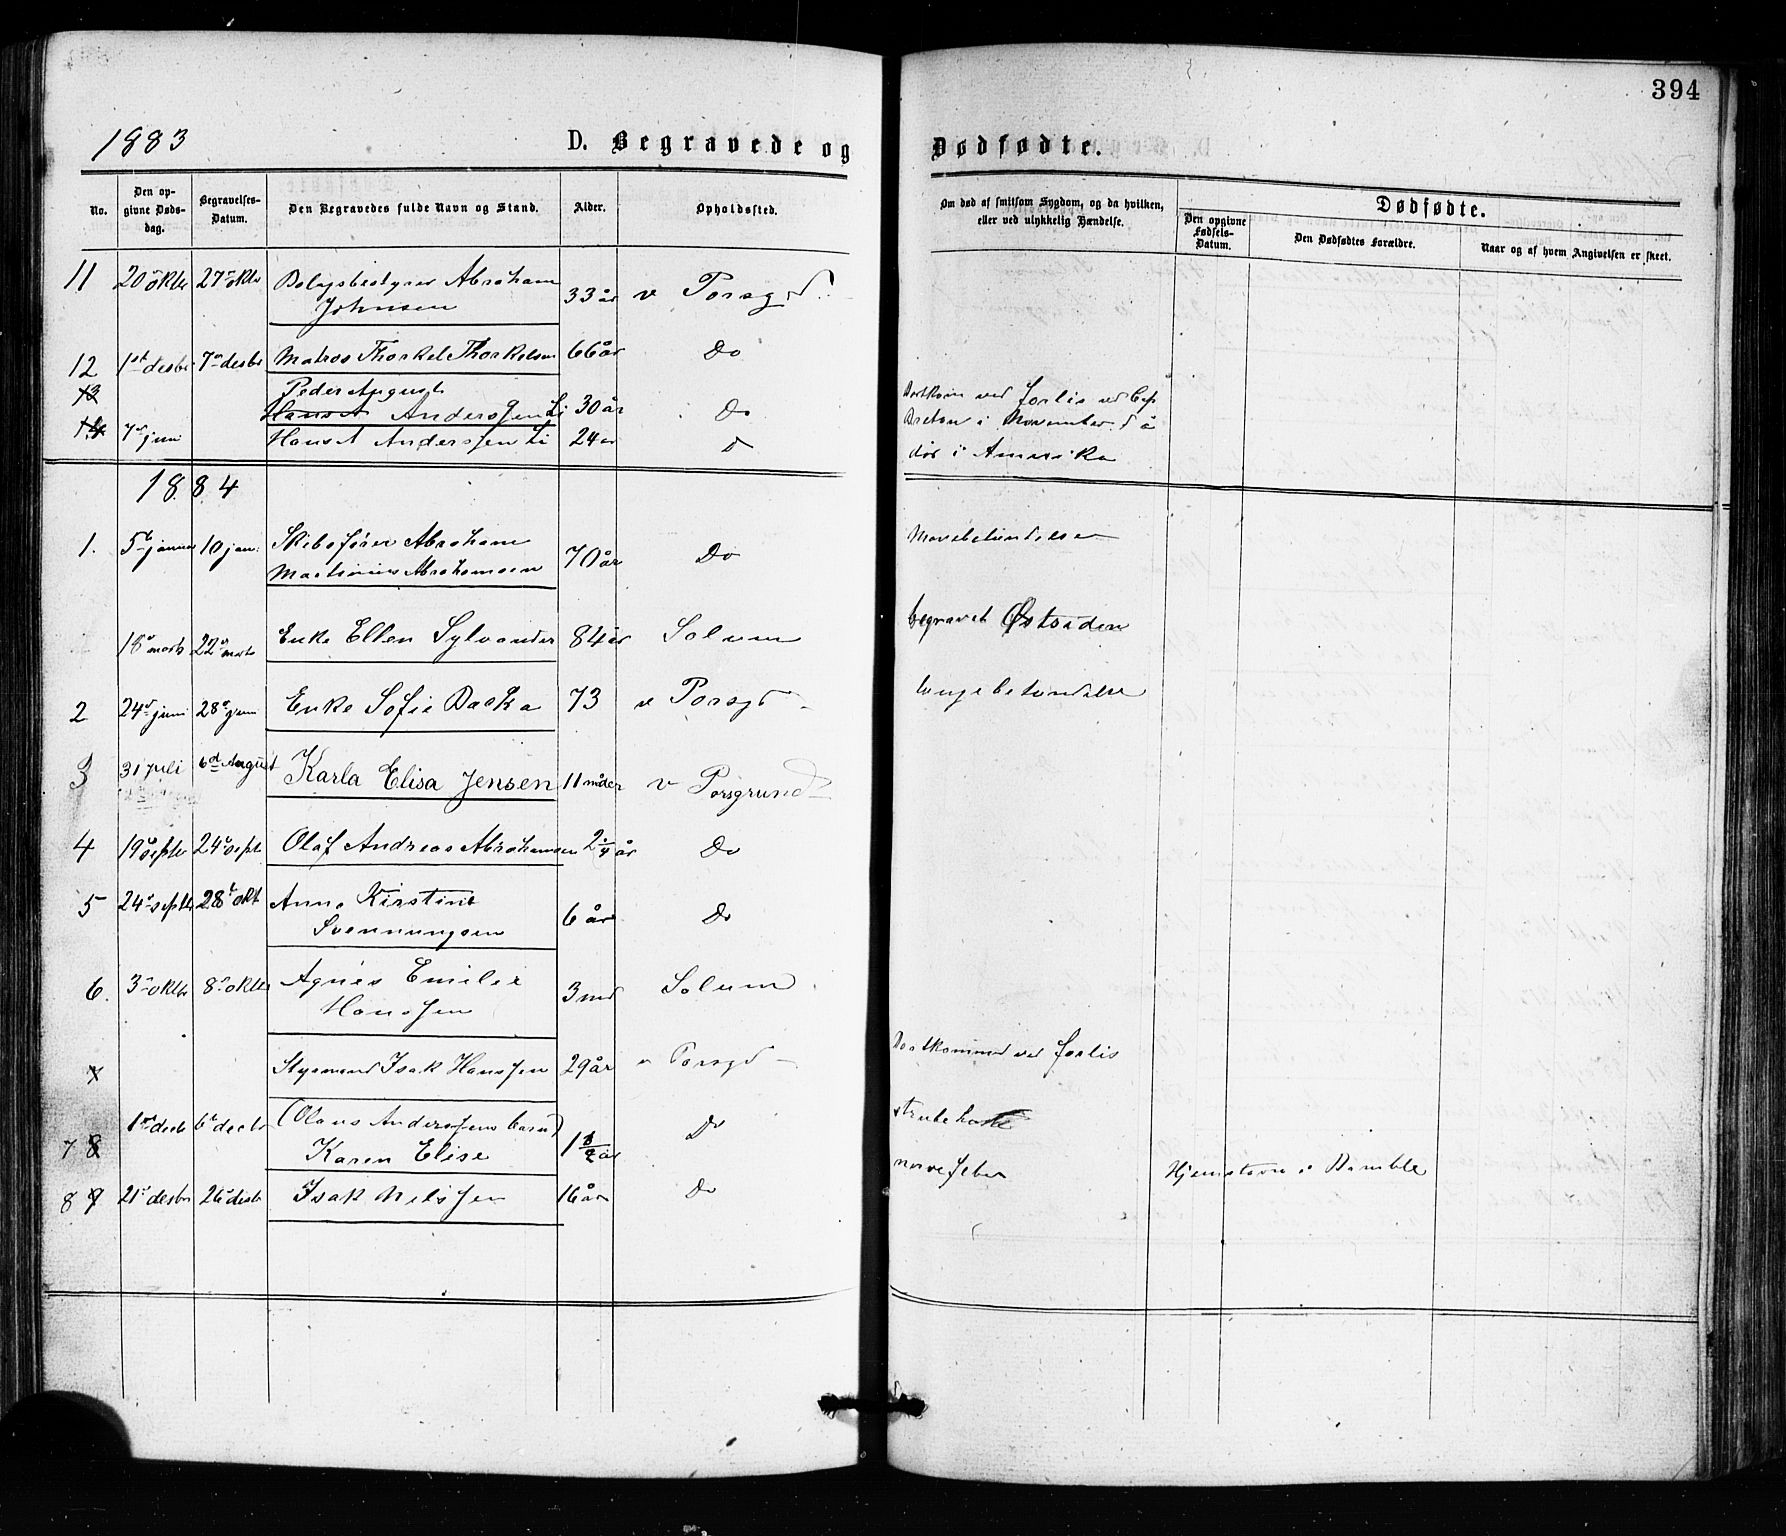 394
1883
D. Begravede og
Dødfødte.
No.
Den op-
givne Døds-
dag.
Begravelses-
Datum.
Den Begravedes fulde Navn og Stand.
Alder.
Opholdssted.
Om død af smitsom Sygdom, og da hvilken,
eller ved ulykkelig Hændelse.
Dødfødte.
Den opgivne
Fødsels-
Datum.
Den Dødfødtes Forældre.
Naar og af hvem Angivelsen er skeet.
11 20 oktbr 27 oktbr Bolagsbestyrer Abraham
Johnsen 33 år v Porsgd.
12 1st desbr 7 desbr Matros Thorkel Thorkelsen 66 år Do
13 Peder August
Hans A Anderssen Li 30 år Do
Bortkom ved forlis ved Cap
Breton i November
14 7 juni Hans A Anderssen Li 24 år Do
død i Amerika
1884
1. 5 januar 10 jan: Skibsfører Abraham
Martinius Abrahamsen 70 år Do
Mavebetændelse
18 marts 22 marts Enke Ellen Sylvander 84 år Solum
begravet Østsiden
2 24 juni 28 juni Enke Sofie Backa 73 v Porsgd
lungebetændelse
3 31 juli 6d August Karla Elisa Jensen 11 måder v Porsgrund
4 19 septbr 24 septb Olaf Andreas Abrahamsen 2 1/4 år Do
5 24 septbr 28 okt Anna Kirstine
Svennungsen 6 år Do
6. 3 oktbr 8 oktbr Agnes Emilie
Hanssen 3 md Solum
7 Styrmand Isak Hanssen 29 år v Porsgd
Bortkommed ved forlis
1 decb 6 decbr (Olaus Anderssens barn)
7 8 Karen Elise 1 1/2 år Do
strubehoste
8 9 21 desbr 26 desbr Isak Nilssen 16 år Do
nervefeber
Hjemstavn i Bamble